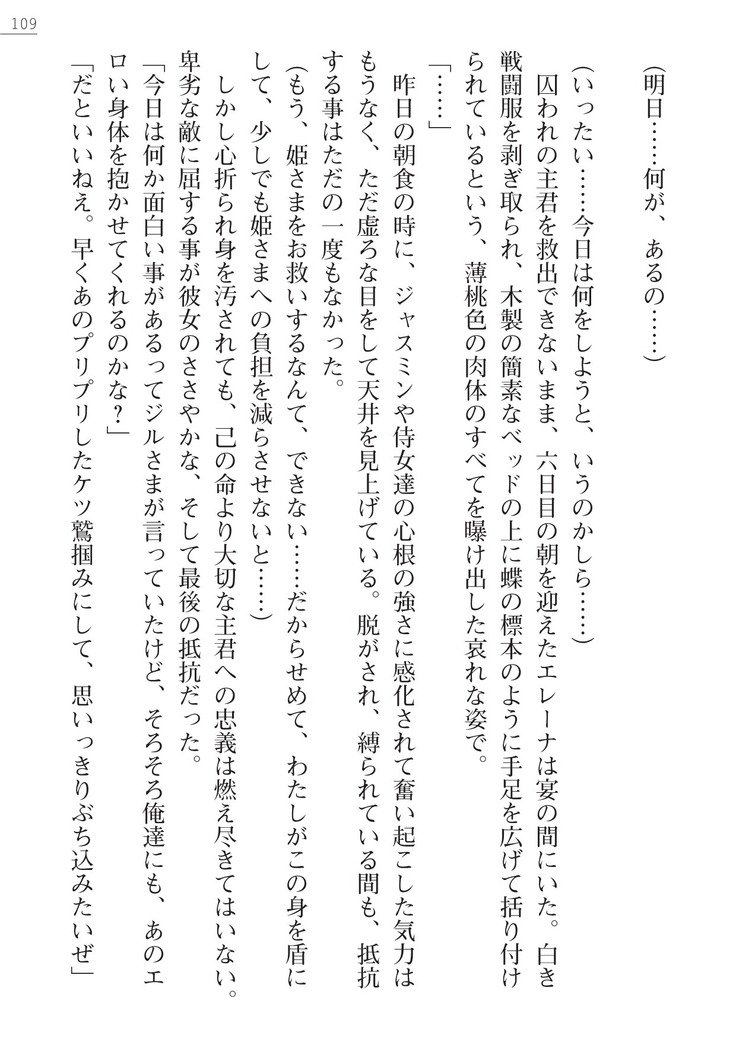 109
(明日……何が、あるの……)
(いったい……今日は何をしようと、いうのかしら……)
囚われの主君を救出できないまま、六日目の朝を迎えたエレーナは宴の間にいた。白き
戦闘服を剥ぎ取られ、木製の簡素なベッドの上に蝶の標本のように手足を広げて括り付け
られているという、薄桃色の肉体のすべてを曝け出した哀れな姿で。
「……」
昨日の朝食の時に、ジャスミンや侍女達の心根の強さに感化されて奮い起こした気力は
もうなく、ただ虚ろな目をして天井を見上げている。脱がされ、縛られている間も、抵抗
する事はただの一度もなかった。
(もう、姫さまをお救いするなんて、できない……だからせめて、わたしがこの身を盾に
して、少しでも姫さまへの負担を減らさせないと……)
しかし心折られ身を汚されても、己の命より大切な主君への忠義は燃え尽きてはいない。
卑劣な敵に屈する事が彼女のささやかな、そして最後の抵抗だった。
「今日は何か面白い事があるってジルさまが言っていたけど、そろそろ俺達にも、あのエ
ロい身体を抱かせてくれるのかな？」
「だといいねえ。早くあのプリプリしたケツ鷲掴みにして、思いっきりぶち込みたいぜ」